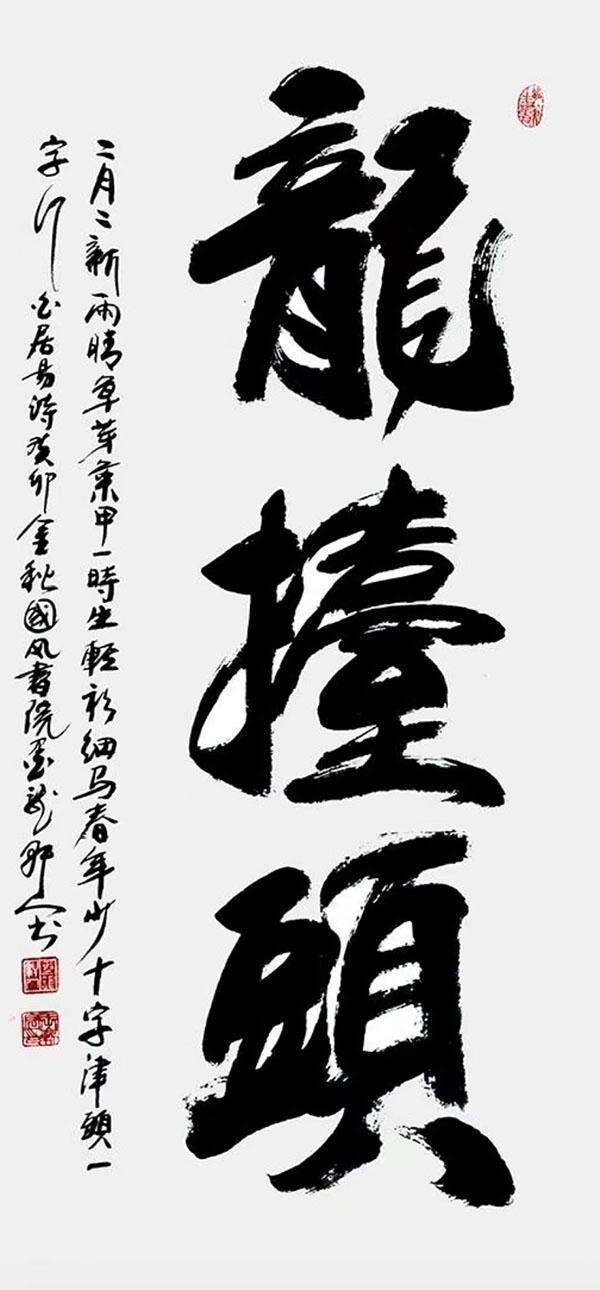 龍擡頭
二月二新雨晴草芽菜甲一時生輕衫细马春年少十字津頭一
字行 白居易诗癸卯金秋國风書院墨龍郡人书